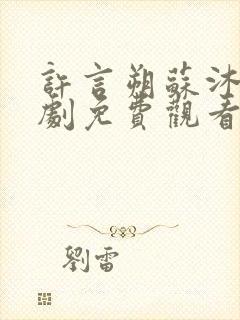 許言朔蘇沐
劇免費觀看
劉雷